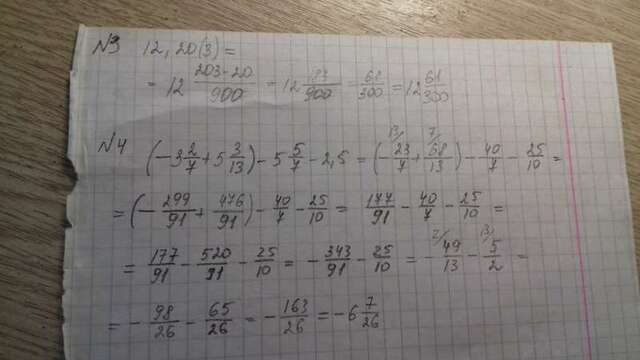 N3 12,20(3) =
= 12 203-20/900 = 12 183/900 = 12 61/300
N4 (-3 2/7 + 5 3/13) - 5 5/7 - 2,5 = (- 23/7 + 68/13) - 40/7 - 25/10 =
= (- 299/91 + 476/91) - 40/7 - 25/10 = 177/91 - 40/7 - 25/10 =
= 177/91 - 520/91 - 25/10 = - 343/91 - 25/10 = - 49/13 - 5/2 =
= - 98/26 - 65/26 = - 163/26 = - 6 7/26